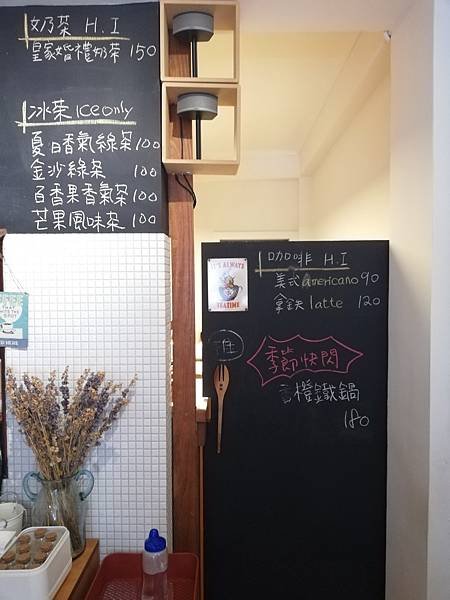 奶茶 H.I
皇家婚禮奶茶 150
冰茶 Ice only
夏日香氣綠茶 100
金沙綠茶 100
百香果香氣茶 100
芒果風味茶 100
咖啡 H.I
美式 americano 90
拿鐵 latte 120
推
季節快閃
香橙鐵鍋
180
IT'S ALWAYS
TEATIME
THAT
HITS THE
SPOT